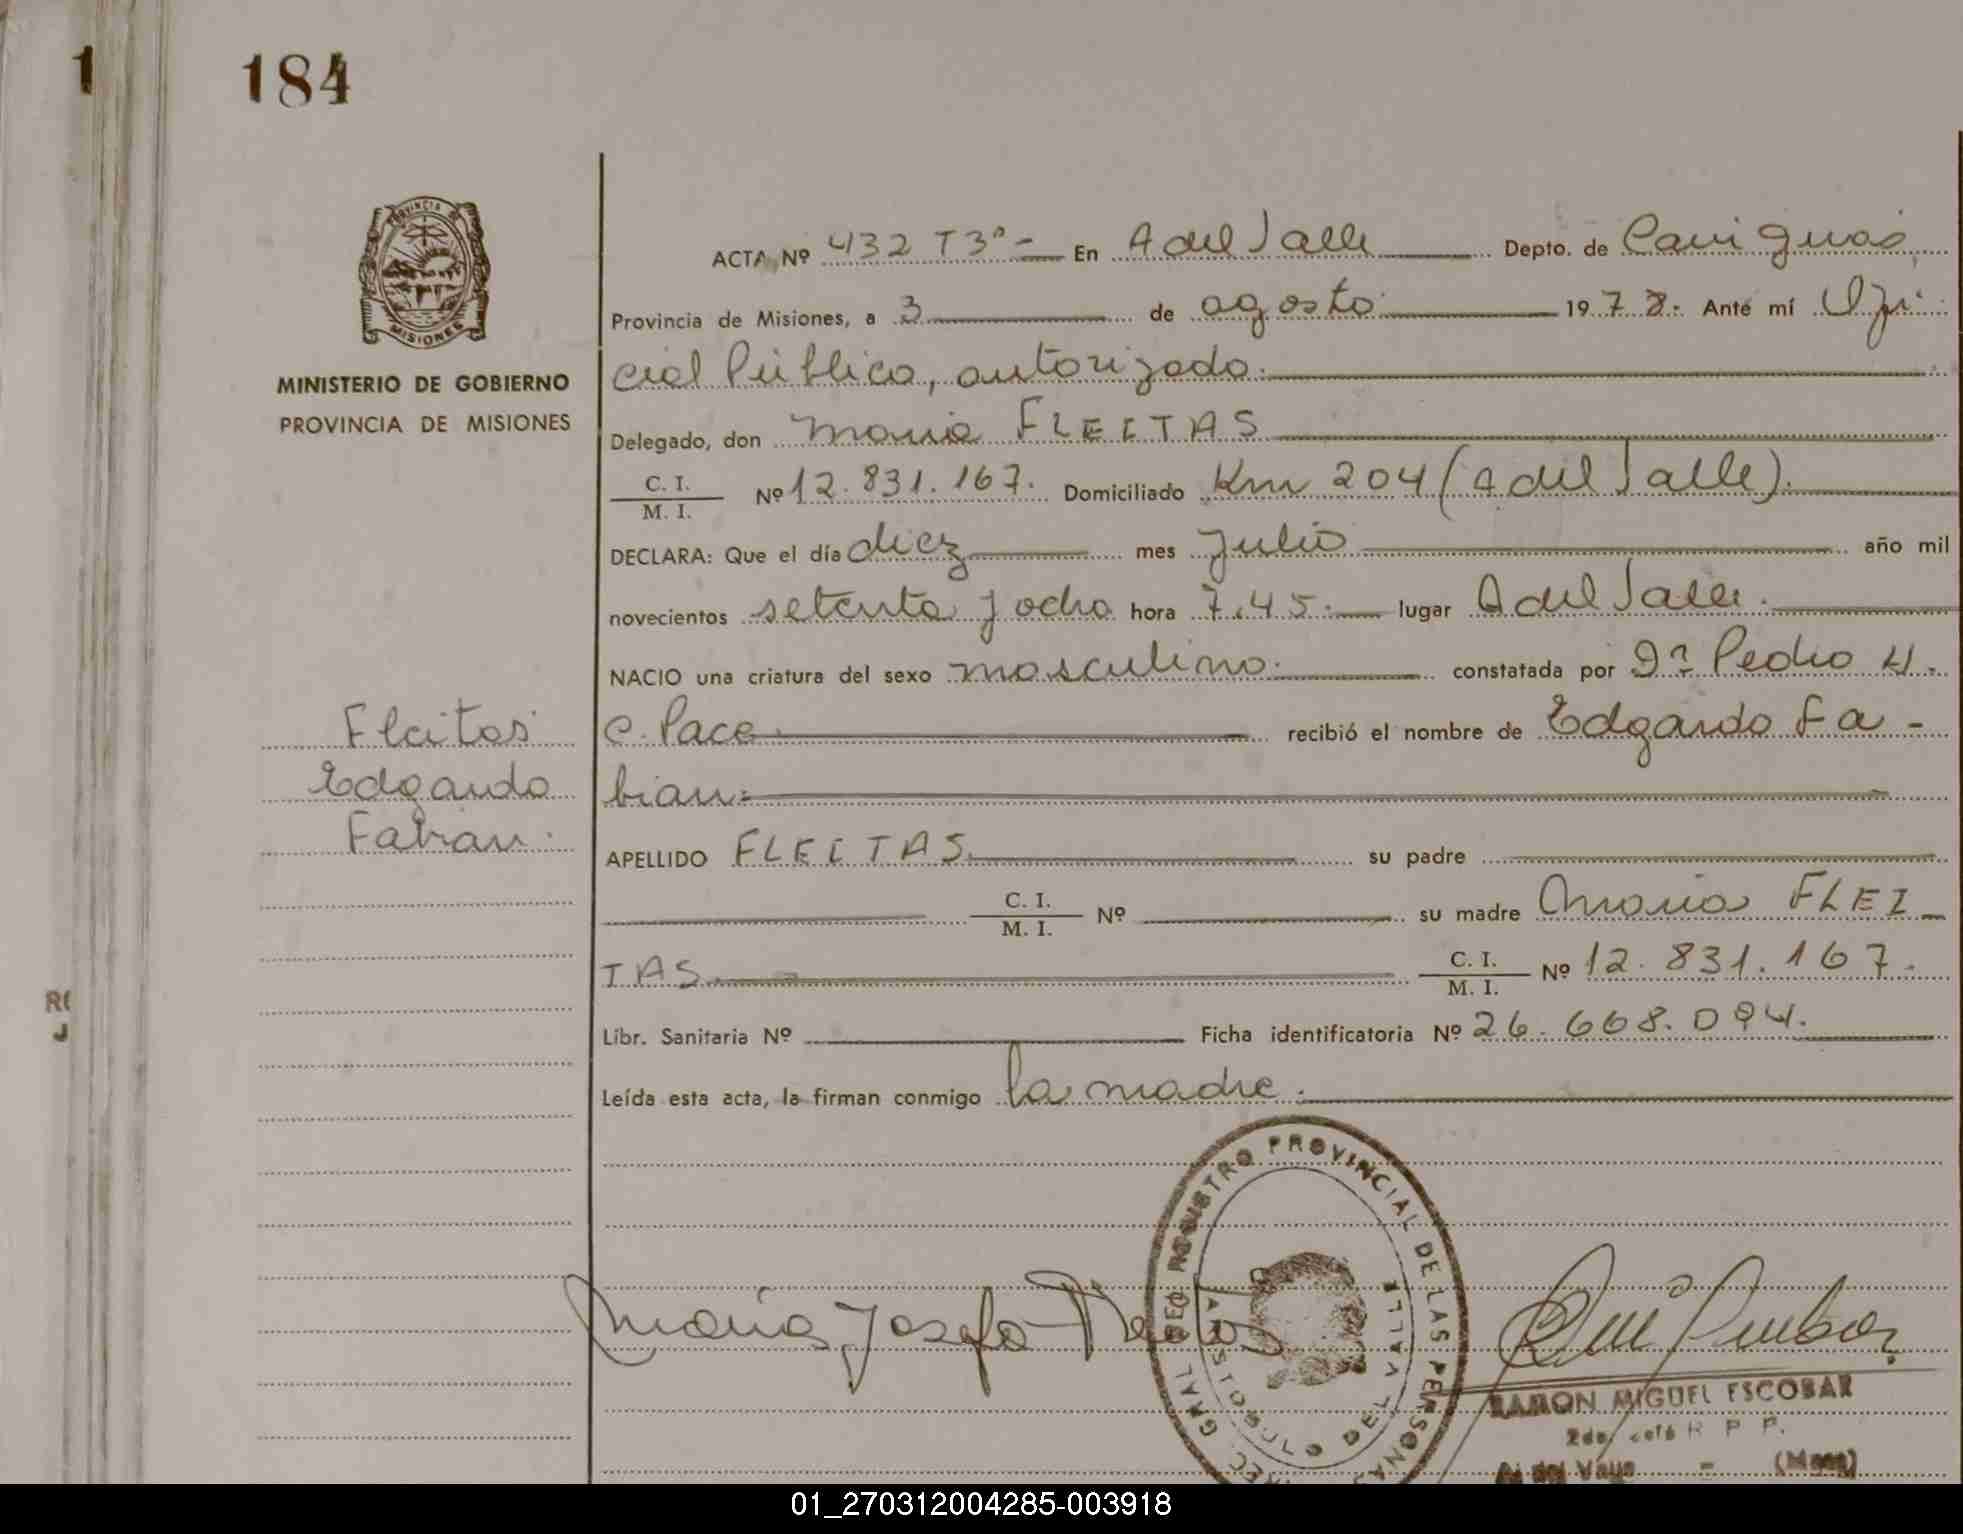 1
184
PROVINCIA DE
MISIONES
MINISTERIO DE GOBIERNO
PROVINCIA DE MISIONES
ACTA Nº 432 T3º - En A del Valle Depto. de Cainguas
Provincia de Misiones, a 3 de agosto 1978. Ante mí Ofi
cial Público, autorizado.
Delegado, don Maria FLEITAS
C. I.
M. I. Nº 12.831.167. Domiciliado Km 204 (A del Valle).
DECLARA: Que el día diez mes Julio año mil
novecientos setenta y ocho hora 7.45. lugar A del Valle.
NACIO una criatura del sexo masculino. constatada por Dr. Pedro H.
C. Pace. recibió el nombre de Edgardo Fa-
bian.
Fleitas
Edgardo
Fabian.
APELLIDO FLEITAS su padre
C. I.
M. I. Nº su madre Maria FLEI
TAS. C. I.
M. I. Nº 12.831.167.
Libr. Sanitaria Nº Ficha identificatoria Nº 26.668.094.
Leída esta acta, la firman conmigo la madre.
REC GRAL DEL REGISTRO PROVINCIAL DE LAS PERSONAS
ARISTOBULO DEL VALLE
Maria Josefa Fleitas
RAMON MIGUEL ESCOBAR
2do. Jefe R P P.
A. del Valle - (Mnes)
01_270312004285-003918